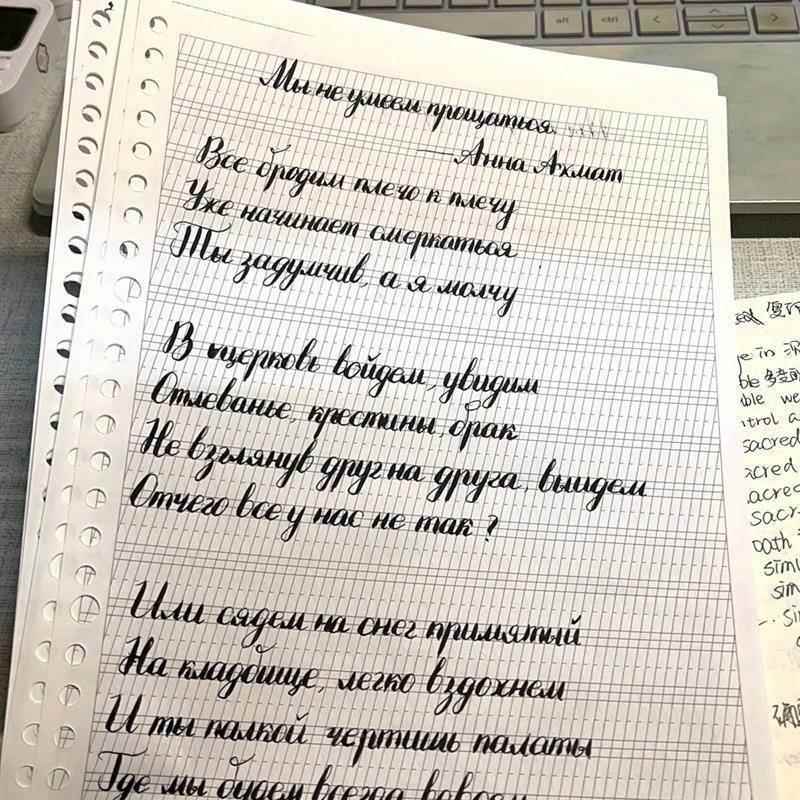 alt
ctrl
Мы не умеем прощаться
—Анна Ахмат
Все бродим плечо к плечу
Уже начинает смеркаться
Ты задумчив, а я молчу
В церковь войдем, увидим
Отпеванье, крестины, брак
Не взглянув друг на друга, выидем
Отчего все у нас не так?
Или сядем на снег примятый
На кладбище, легко вздохнем
И ты палкой чертишь палаты
Где мы будем всегда вдвоем
e in
ble
ble we
trol a
sacred
acred
acred
sacr
oath
simu
sim